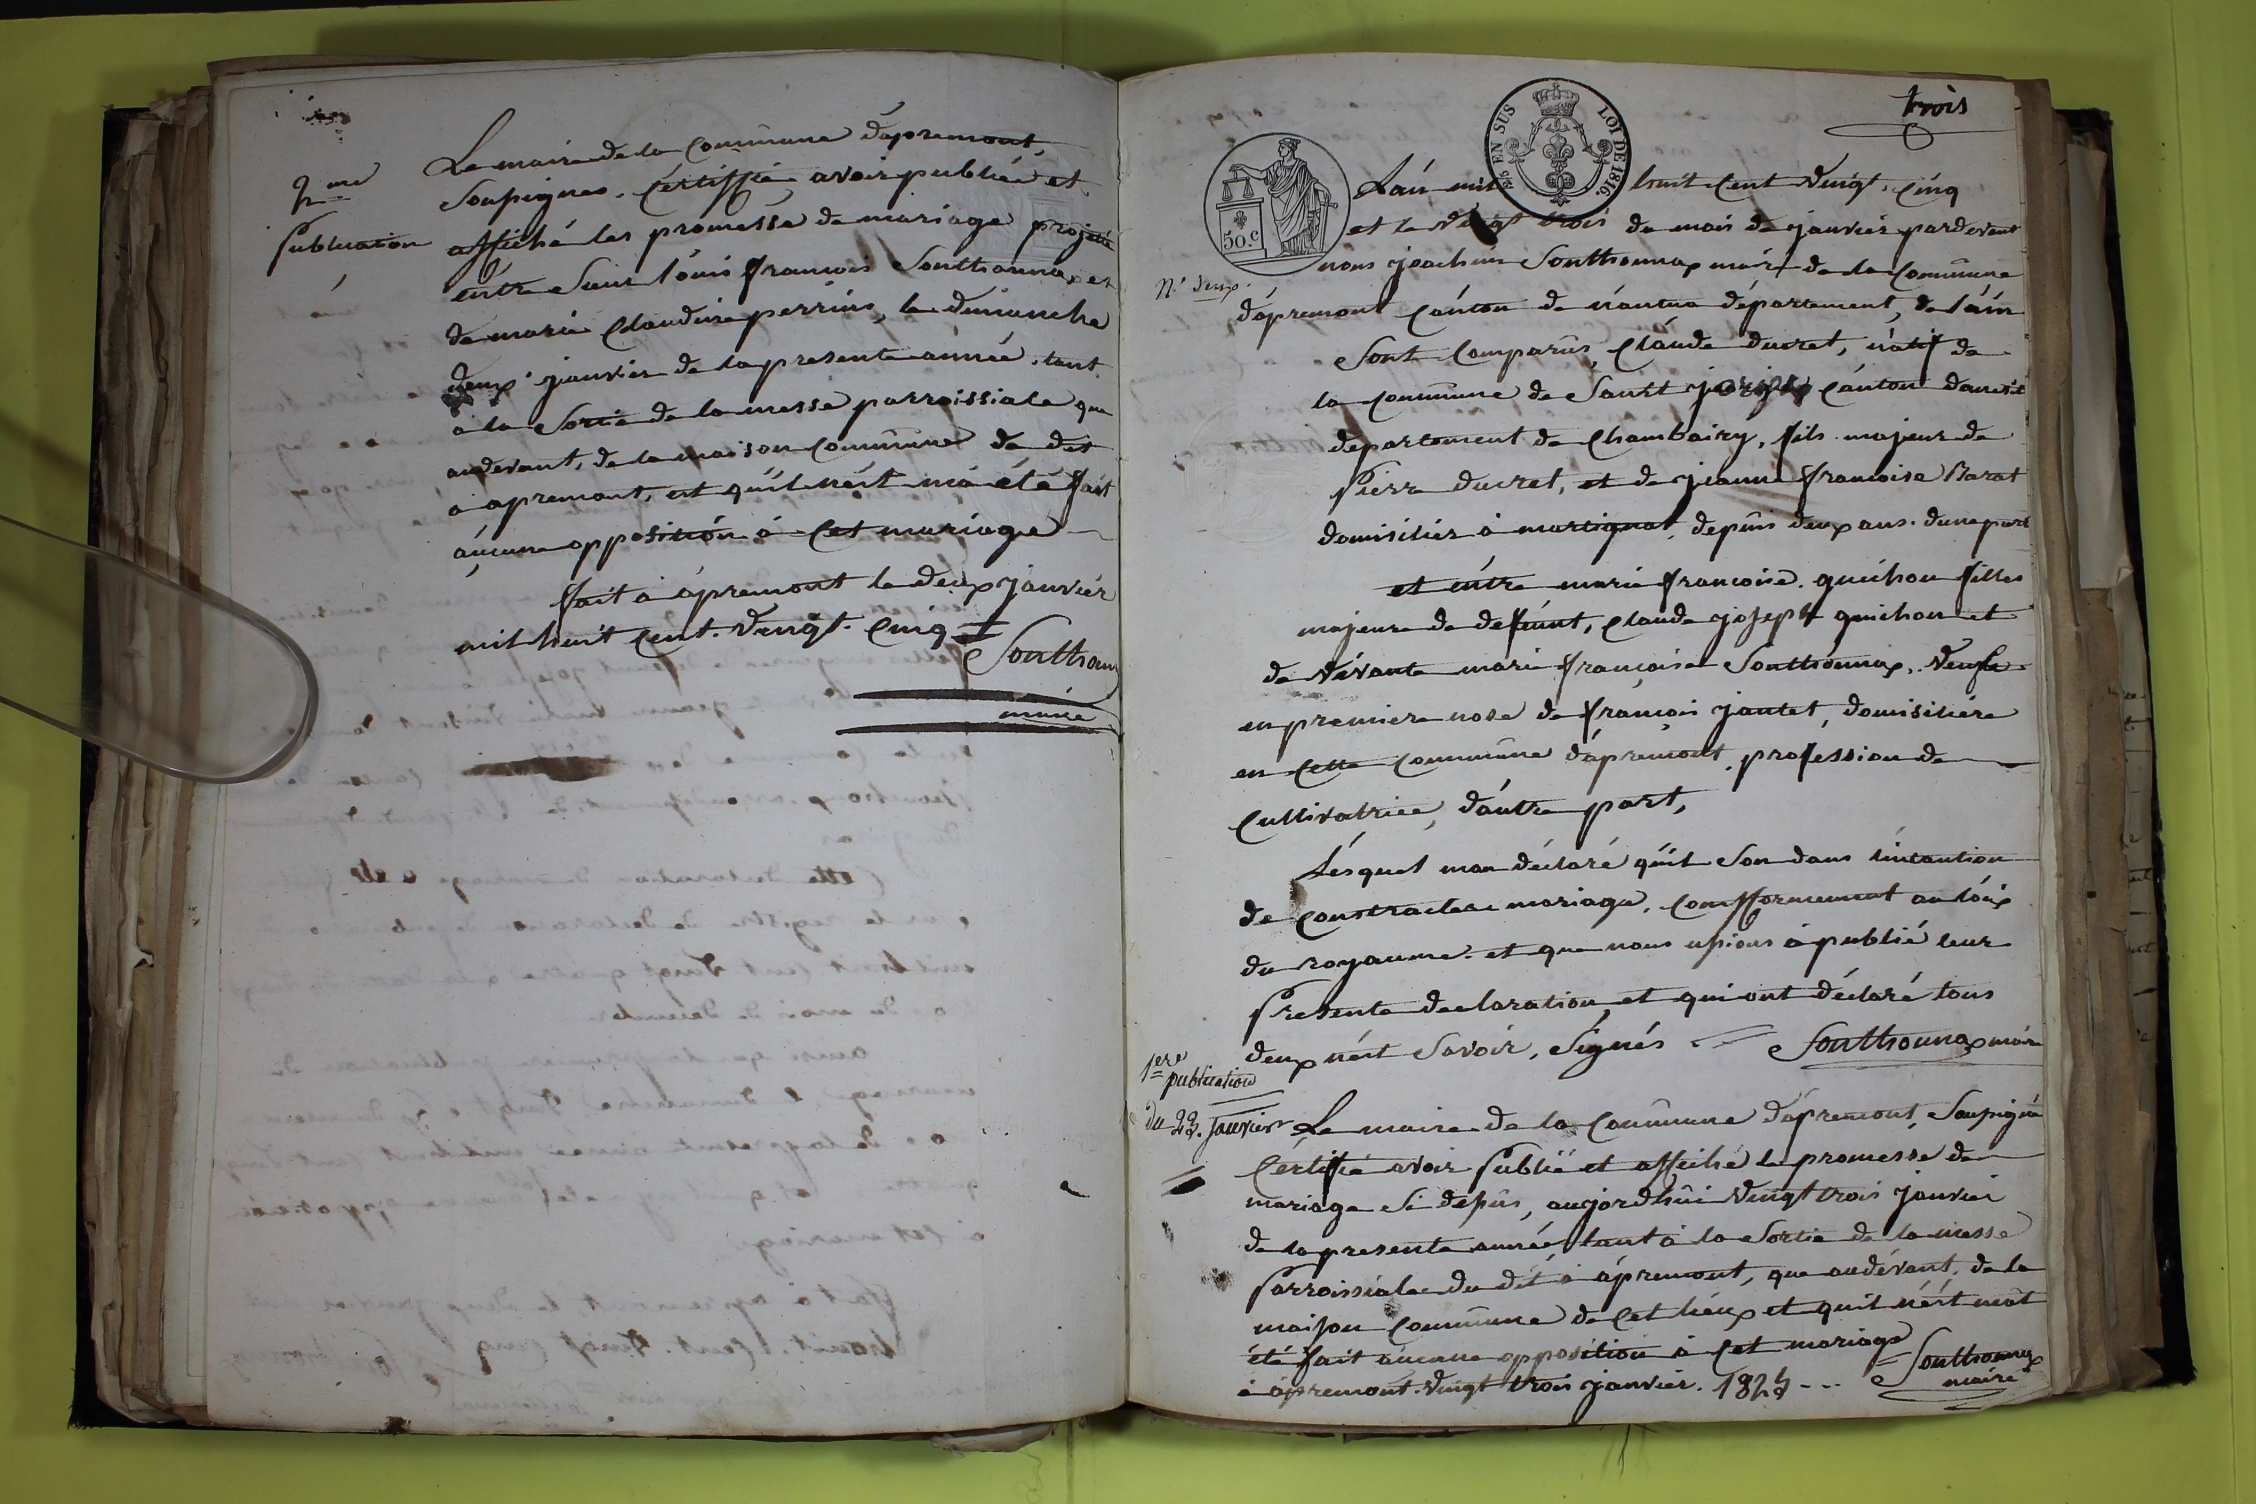 2me
publication
Le maire de la Commûne dápremont,
Soupignes. Certiffie avoir publiée et
affiché les promesse de mariage projetté
entre Sieur loúis françois Sonthonnax et
de marie Claudine perrins, le dimanche
deux janvier de la presente année. tant
à la Sortie de la messe parroissiale que
audevant, de la maison Commûne de dit
à apremont, et qúil nést má été fait
aúcune opposition à Cet mariage
fait à ápremont le deux janviér
mil huit Cent. Vingt. Cinq
Sonthonn
maire
trois
EN SUS
LOI DE 1816.
50.c
N.º deux.
Lán mil huit Cent Vingt. Cinq
et le Vingt trois du mois de janvier pardevant
nous joachim Sonthonnax maire de la Commûne
dápremont Canton de nantua département, de láin
Sont Comparûs Claúde ducret, natif de
la Commûne de Saint Cánton
département de Chambairy, fils majeur de
Pierre ducret, et de jeanne françoise Barat
domisiliér à martignat, depûis deux ans. dune part
et éntre marie françoise. guichon filles
majeure de deffúnt, Claude joseph guichon et
de Vivante marie françoise Sonthonnax, Veufve
en premiere nose de françois jantet, domisiliére
en Cette Commûne dápremont profession de
Cultivatrice, daútre part,
Lésquel mon déclaré qúil Son dans líntantion
de Constracter mariage, Conformement au lóix
du royaume et que nous a publié leur
Presente declaration, et qui ont déclaré tous
deux nést Savoir, Signés Sonthonnax maire
1ere
publication
du 23. Janvier
Le maire de la Commûne dápremont, Soupigné
Cértifié avoir Publié et affiché la promesse de
mariage Si depûs, aujordhúi Vingt trois janvier
de la presente année, tant à la Sortie de la messe
Parroissiale du dit à ápremont, que audévant, de la
maison Commûne de Cet liéux et quil nést mát
été fait aucune opposition à Cet mariage
à ápremont. Vingt trois janvier. 1825 ---
Sonthonnax
maire